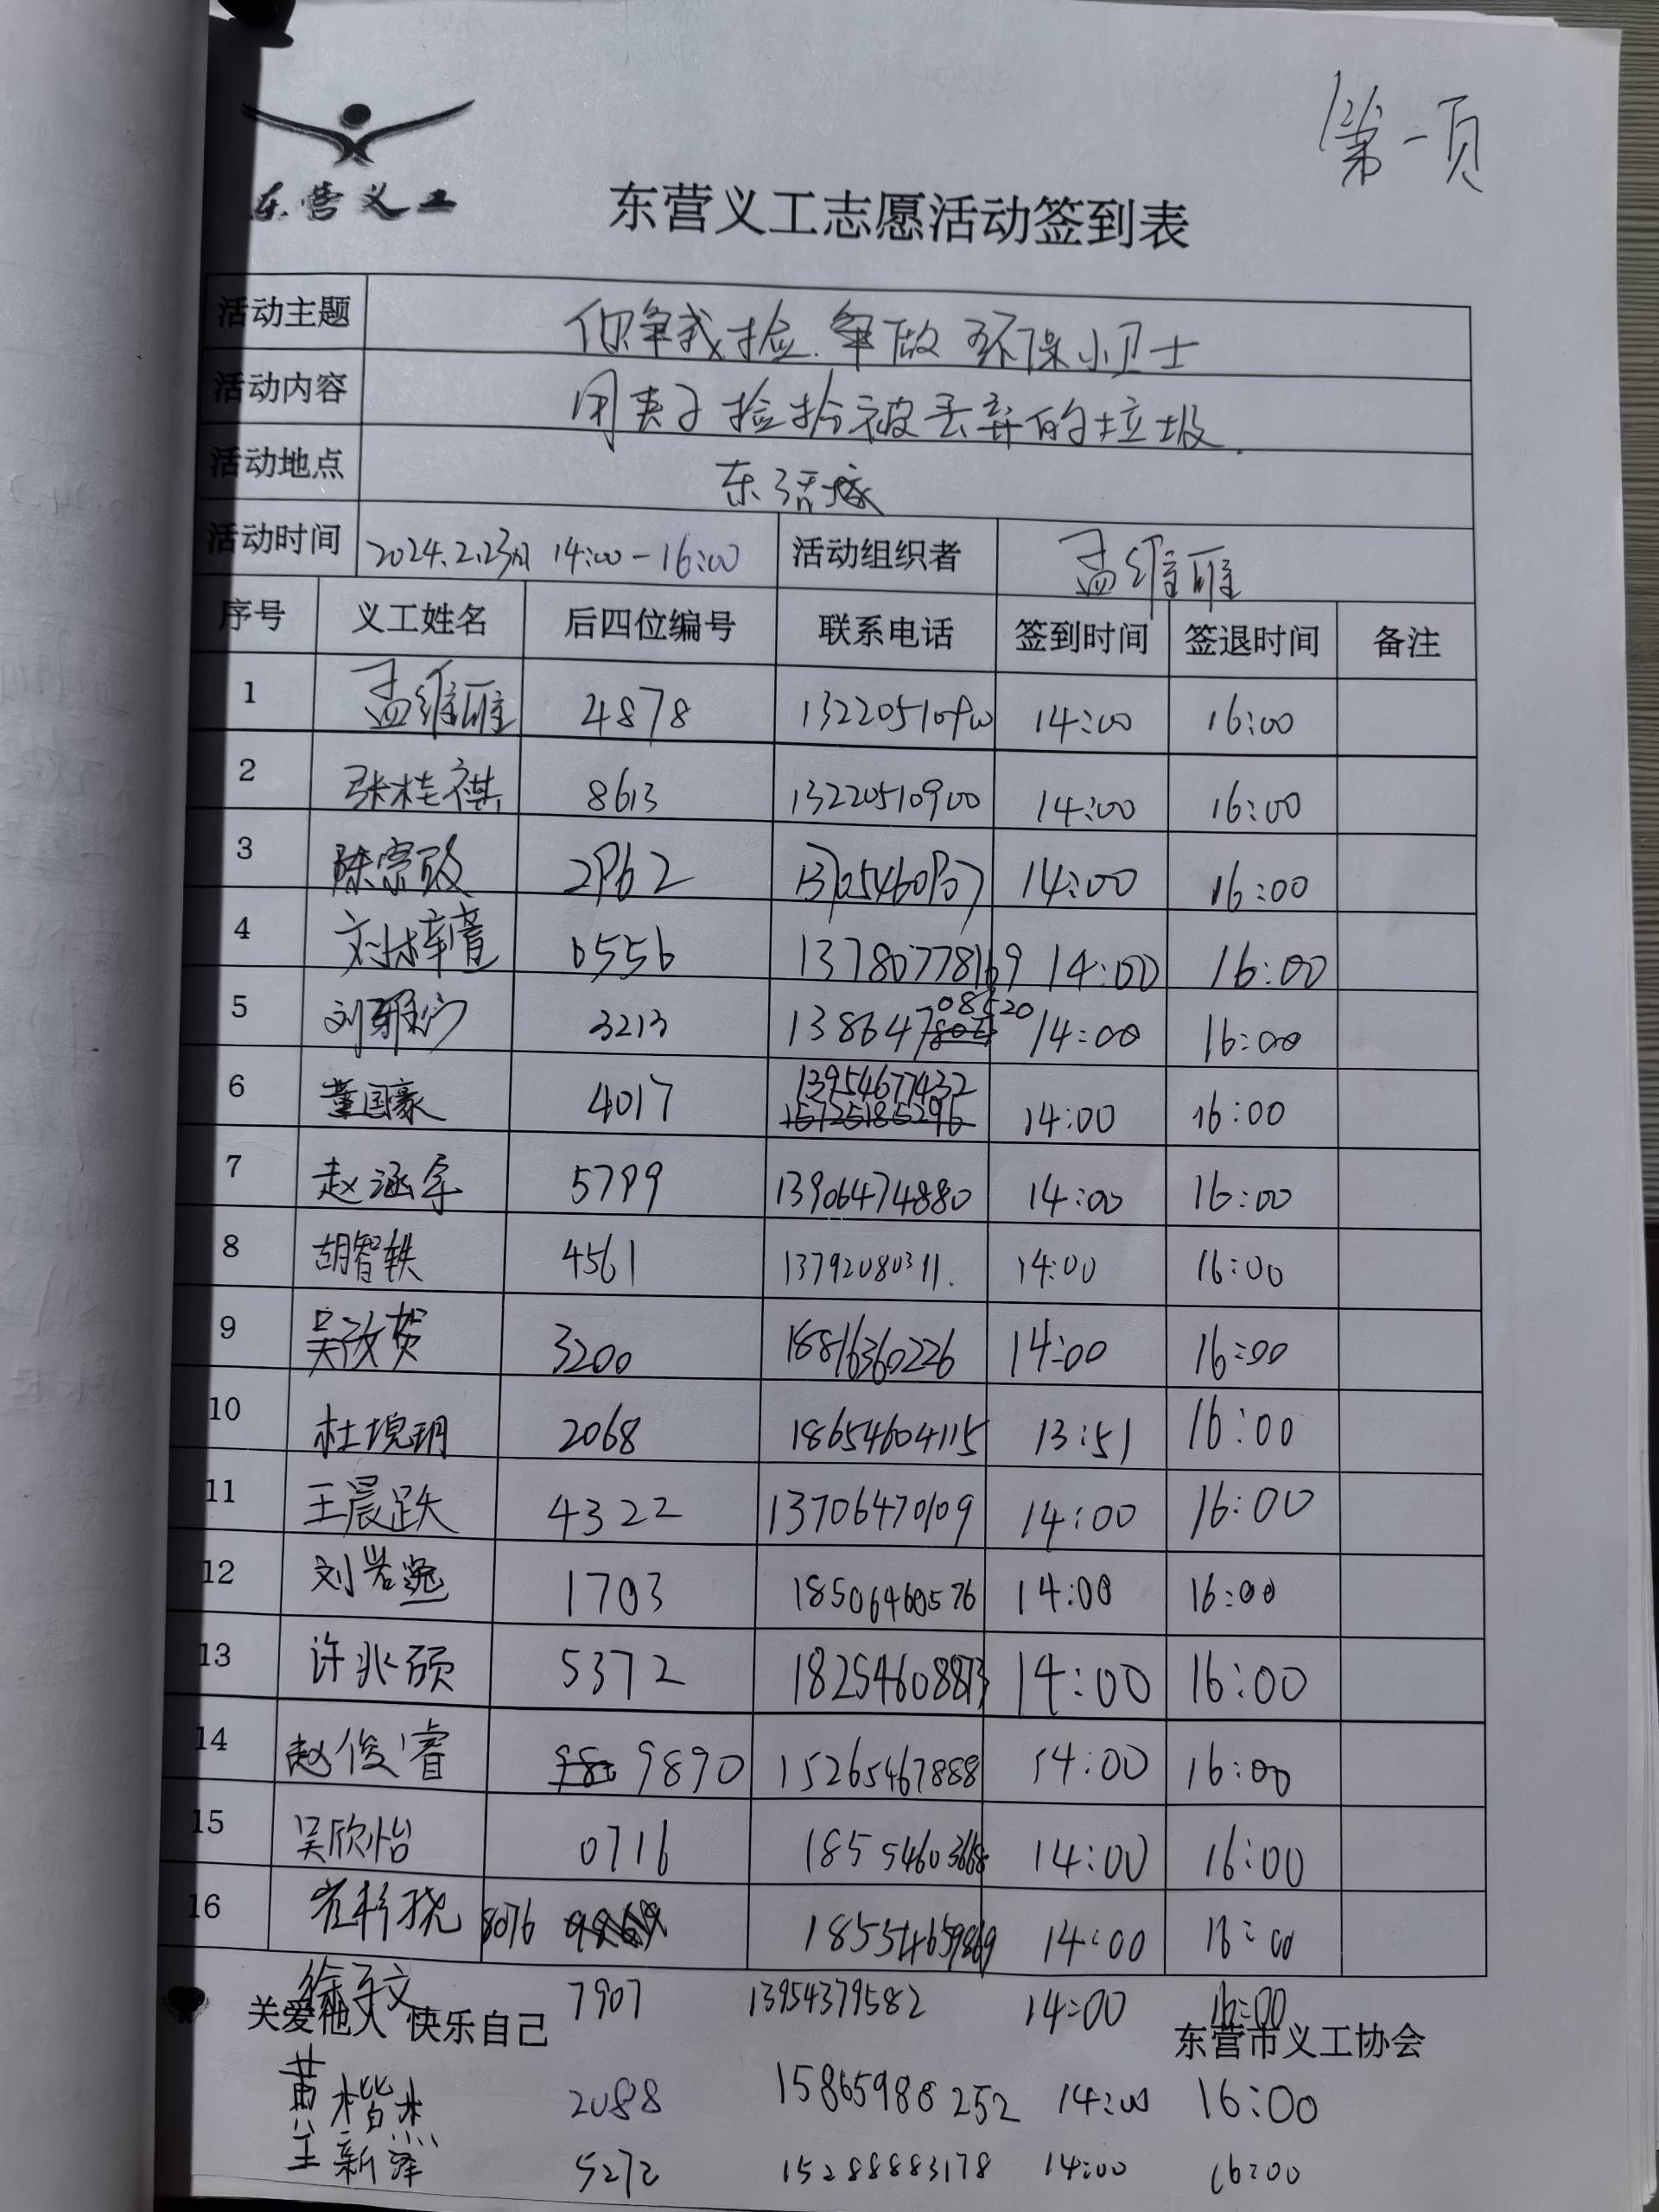 第一页
东营义工
东营义工志愿活动签到表
活动主题 你争我捡.争做环保小卫士
活动内容 用夹子捡拾被丢弃的垃圾.
活动地点 东
活动时间 2024.2.23日 14:00-16:00 活动组织者 孟维雁
序号 义工姓名 后四位编号 联系电话 签到时间 签退时间 备注
1 孟维雁 4878 13220510900 14:00 16:00
2 张桂祺 8613 13220510900 14:00 16:00
3 陈宗致 2962 13705460907 14:00 16:00
4 刘梓萱 6556 13780778169 14:00 16:00
5 刘雅 3213 13864708520 14:00 16:00
6 董国豪 4017 13954677432 14:00 16:00
15725185296
7 赵涵宇 5799 13906474880 14:00 16:00
8 胡智轶 4561 13792080311. 14:00 16:00
9 吴 3200 18816360226 14:00 16:00
10 杜玥 2068 18654604115 13:51 16:00
11 王晨跃 4322 13706470109 14:00 16:00
12 刘岩 1703 18506460576 14:00 16:00
13 许兆硕 5372 18254608873 14:00 16:00
14 赵俊睿 9890 15265467888 14:00 16:00
15 吴欣怡 0716 18554603668 14:00 16:00
16 崔 8076 18554659869 14:00 16:00
徐子文 7907 13954379582 14:00 16:00
关爱他人 快乐自己 东营市义工协会
黄楷杰 2088 15865988252 14:00 16:00
王新泽 5272 15288883178 14:00 16:00